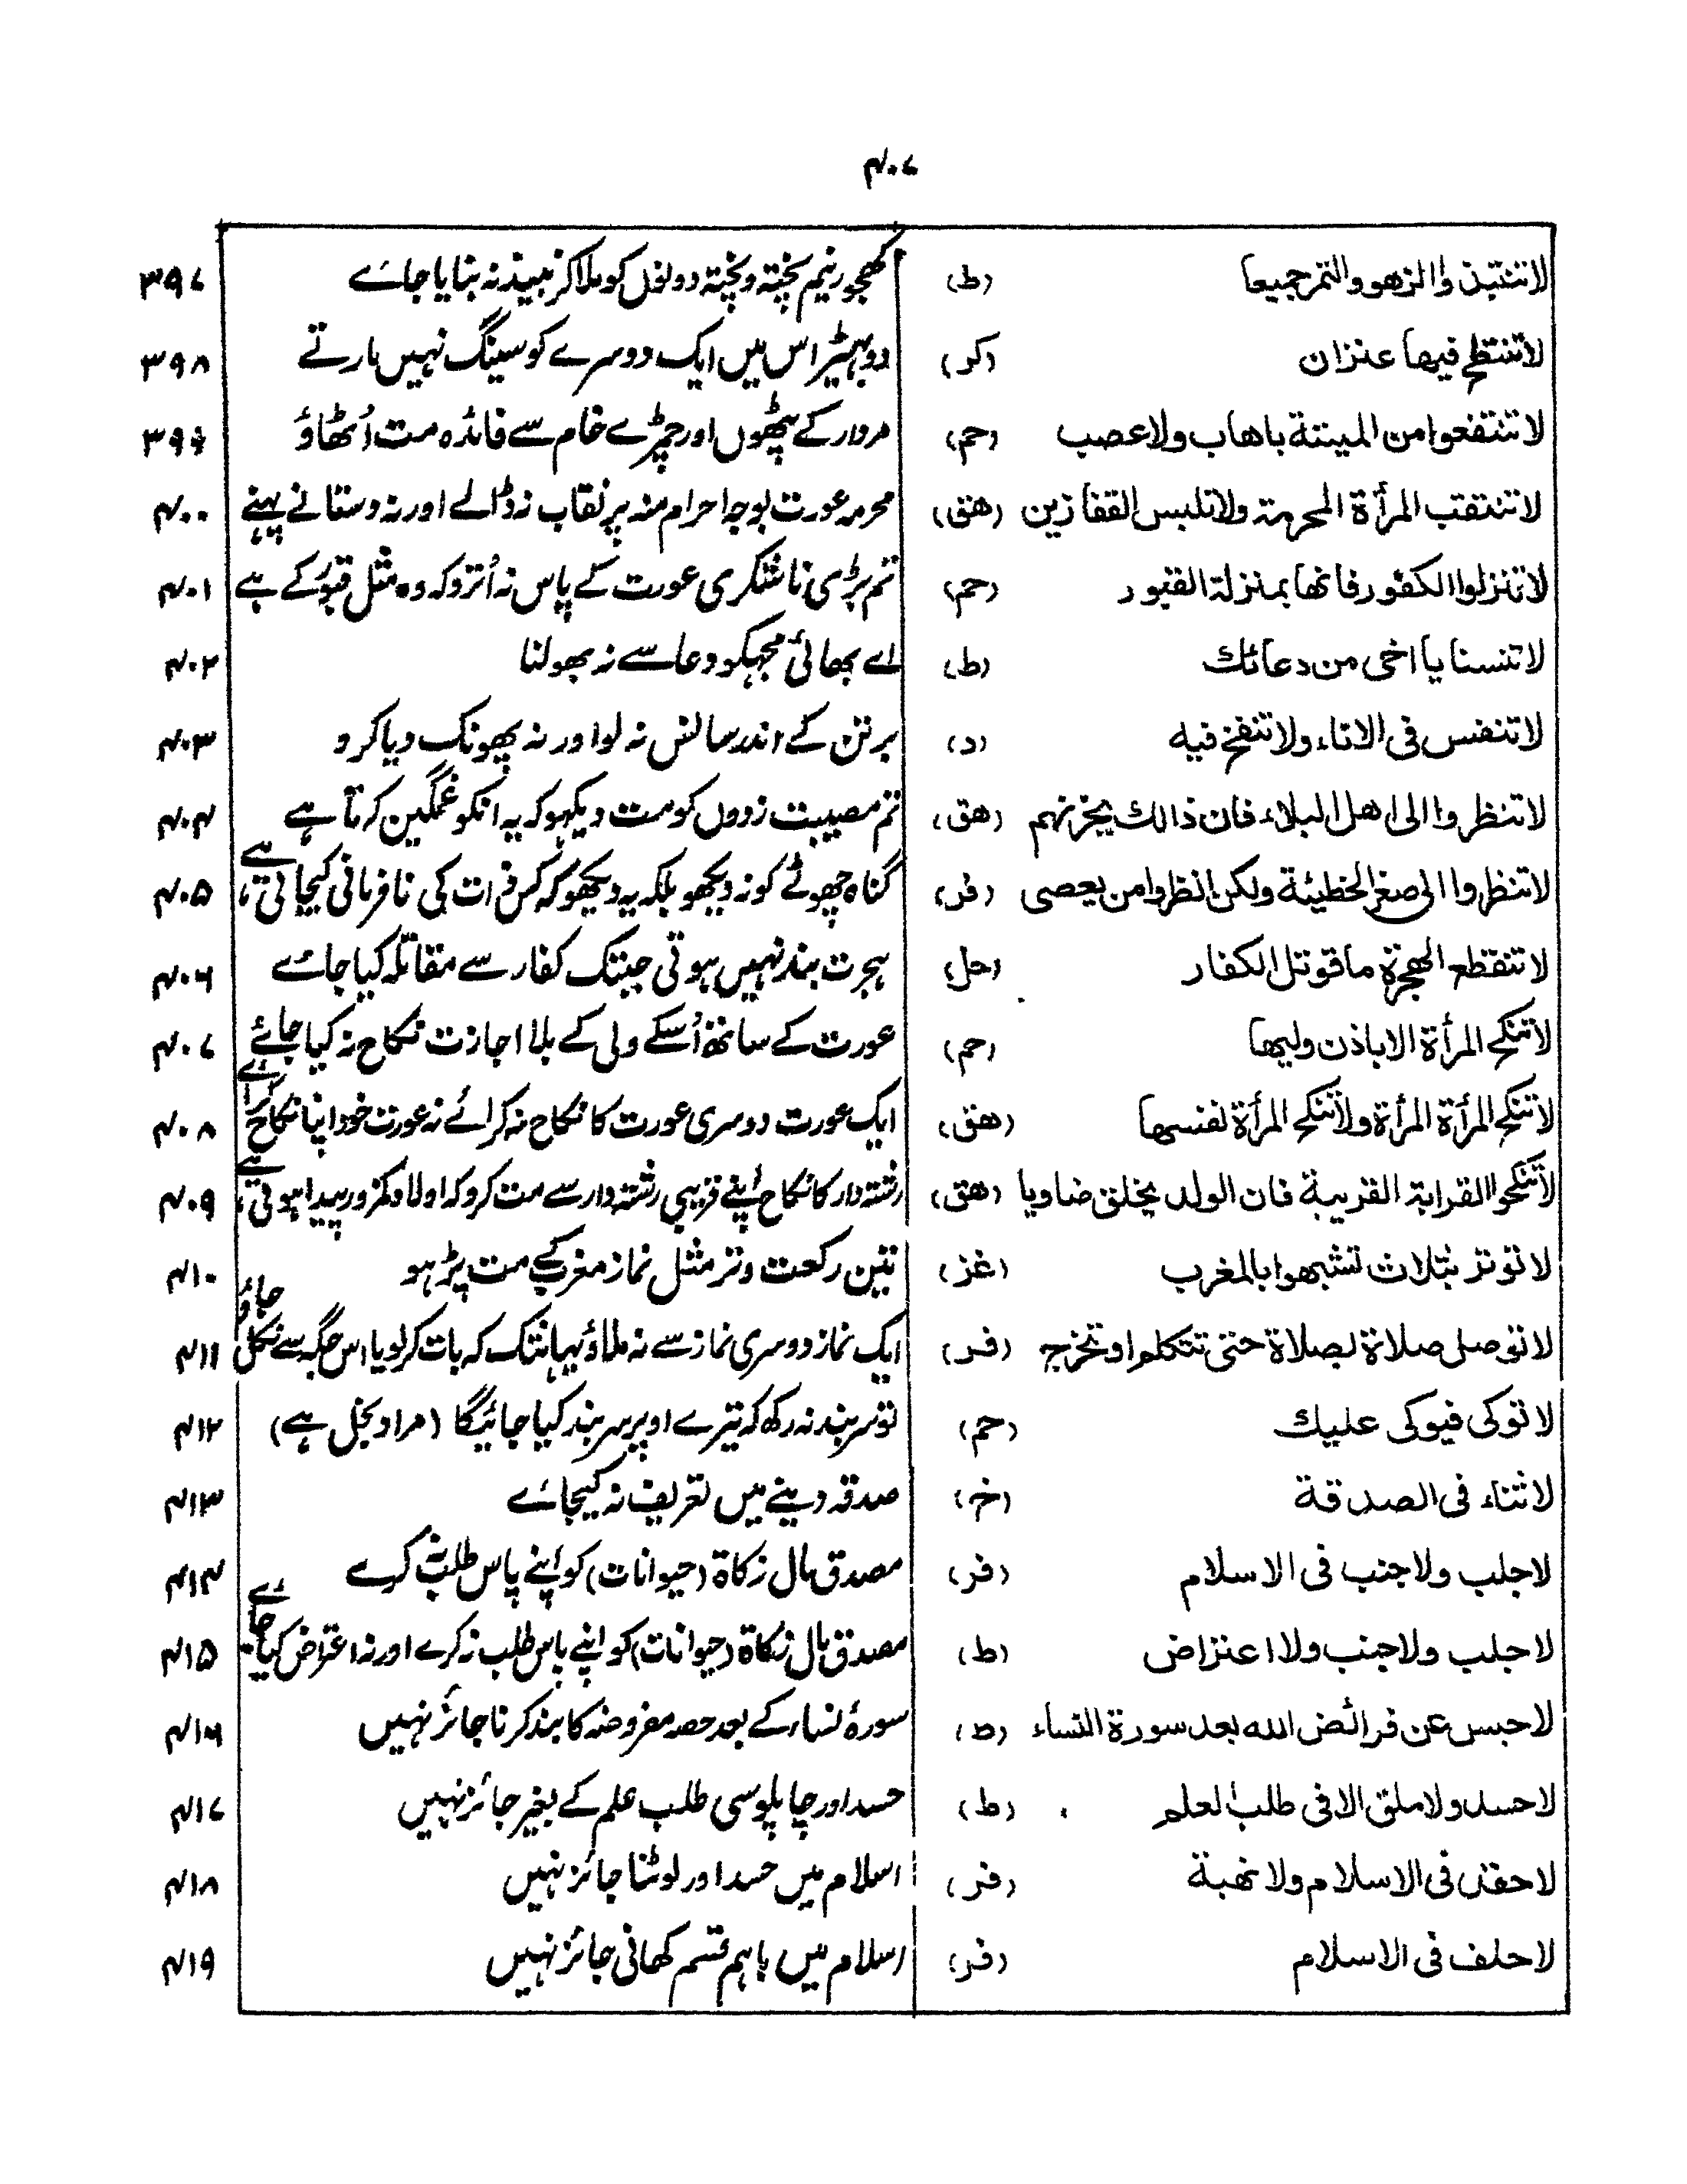 ۴۰۷
لا تنتبذوا الزهو والتمر جميعا (ط) کھجور نیم پختہ و پختہ دونوں کو ملا کر نبیذ نہ بنایا جائے ۳۹۷
لا تنتطح فيها عنزان (كر) دو بھیڑ اس میں ایک دوسرے کو سینگ نہیں مارتے ۳۹۸
لا تنتفعوا من الميتة باهاب ولا عصب (حم) مردار کے پٹھوں اور چمڑے خام سے فائدہ مت اُٹھاؤ ۳۹۹
لا تنتقب المرأة المحرمة ولا تلبس القفازين (هق) محرمہ عورت بوجہ احرام منہ پر نقاب نہ ڈالے اور نہ دستانے پہنے ۴۰۰
لا تنزلوا الكفور فانها بمنزلة القبور (حم) تم بڑی ناشکری عورت کے پاس نہ اُترو کہ وہ مثل قبور کے ہے ۴۰۱
لا تنسنا يا اخى من دعائك (ط) اے بھائی مجہکو دعا سے نہ بھولنا ۴۰۲
لا تنفس فى الاناء ولا تنفخ فيه (د) برتن کے اندر سانس نہ لو اور نہ پھونک دیا کرو ۴۰۳
لا تنظروا الى اهل البلاء فان ذالك يحزنهم (هق) تم مصیبت زدوں کو مت دیکہو کہ یہ انکو غمگین کرتا ہے ۴۰۴
لا تنظروا الى صغر الخطيئة ولكن انظروا من يعصى (فر) گناہ چھوٹے کو نہ دیکھو بلکہ یہ دیکھو کہ کس ذات کی نافرمانی کیجاتی ہے ۴۰۵
لا تنقطع الهجرة ما قوتل الكفار (حل) ہجرت بند نہیں ہوتی جبتک کفار سے مقاتلہ کیا جائے ۴۰۶
لا تنكح المرأة الا باذن وليها (حم) عورت کے ساتھ اُسکے ولی کے بلا اجازت نکاح نہ کیا جائے ۴۰۷
لا تنكح المرأة المرأة ولا تنكح المرأة نفسها (هق) ایک عورت دوسری عورت کا نکاح نہ کرائے نہ عورت خود اپنا نکاح کرائے ۴۰۸
لا تنكحوا القرابة القريبة فان الولد يخلق ضاويا (هق) رشتہ دار کا نکاح اپنے قریبی رشتہ دار سے مت کرو کہ اولاد کمزور پیدا ہوتی ہے ۴۰۹
لا توتر بثلاث تشبهوا بالمغرب (غز) تین رکعت وتر مثل نماز مغرب کے مت پڑہو ۴۱۰
لا توصل صلاة بصلاة حتى تتكلم او تخرج (فر) ایک نماز دوسری نماز سے نہ ملاؤ یہانتک کہ بات کر لو یا اس جگہ سے نکل جاؤ ۴۱۱
لا توكى فيوكى عليك (حم) تو سر بند نہ رکھ کہ تیرے اوپر سر بند کیا جائیگا (مراد بخل ہے) ۴۱۲
لا ثناء فى الصدقة (خ) صدقہ دینے میں تعریف نہ کیجائے ۴۱۳
لا جلب ولا جنب فى الاسلام (فر) مصدق مال زکاۃ (حیوانات) کو اپنے پاس طلب نہ کرے ۴۱۴
لا جلب ولا جنب ولا اعتراض (ط) مصدق مال زکاۃ (حیوانات) کو اپنے پاس طلب نہ کرے اور نہ اعتراض کیا جائے ۴۱۵
لا حبس عن فرائض الله بعد سورة النساء (ط) سورۂ نساء کے بعد حصہ مفروضہ کا بند کرنا جائز نہیں ۴۱۶
لا حسد ولا ملق الا فى طلب العلم (ط) حسد اور چاپلوسی طلب علم کے بغیر جائز نہیں ۴۱۷
لا حقد فى الاسلام ولا نهبة (فر) اسلام میں حسد اور لوٹنا جائز نہیں ۴۱۸
لا حلف فى الاسلام (فر) اسلام میں باہم قسم کھانی جائز نہیں ۴۱۹